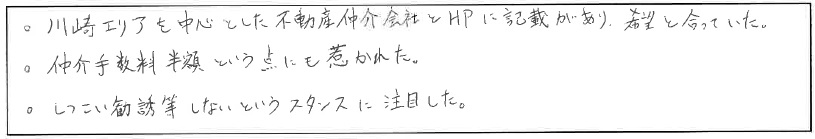 ○ 川崎エリアを中心とした不動産仲介会社とHPに記載があり、希望と合っていた。
○ 仲介手数料半額という点にも惹かれた。
○ しつこい勧誘等しないというスタンスに注目した。